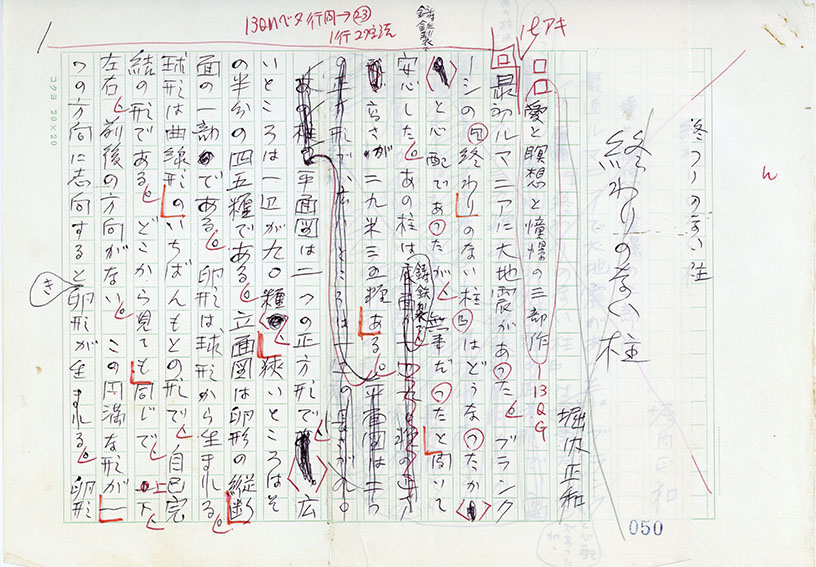 13QM ベタ 行間→23
1行29字詰
1字アキ
終わりのない柱
終わりのない柱
ん
堀内正和
愛と瞑想と憧憬の三部作
13QG
最初ルマニアに大地震があった。ブランク
ーシの終わりのない柱はどうなったか
と心配であったが、無事だったと聞いて
安心した。あの柱は鋳鉄製で
高さが二九米三五糎ある。平面図は
平面図は二つの正方形で、広
いところは一辺が九〇糎、狭いところはそ
の半分の四五糎である。立面図は卵形の縦断
面の一部である。卵形は球形から生まれる。
球形は曲線形のいちばんもとの形で、自己完
結の形である。どこから見ても同じで、上下、
左右、前後の方向がない。この円満な形が一
つの方向に志向すると卵形が生まれる。卵形
き
鋳鉄製
コクヨ 20×20
050